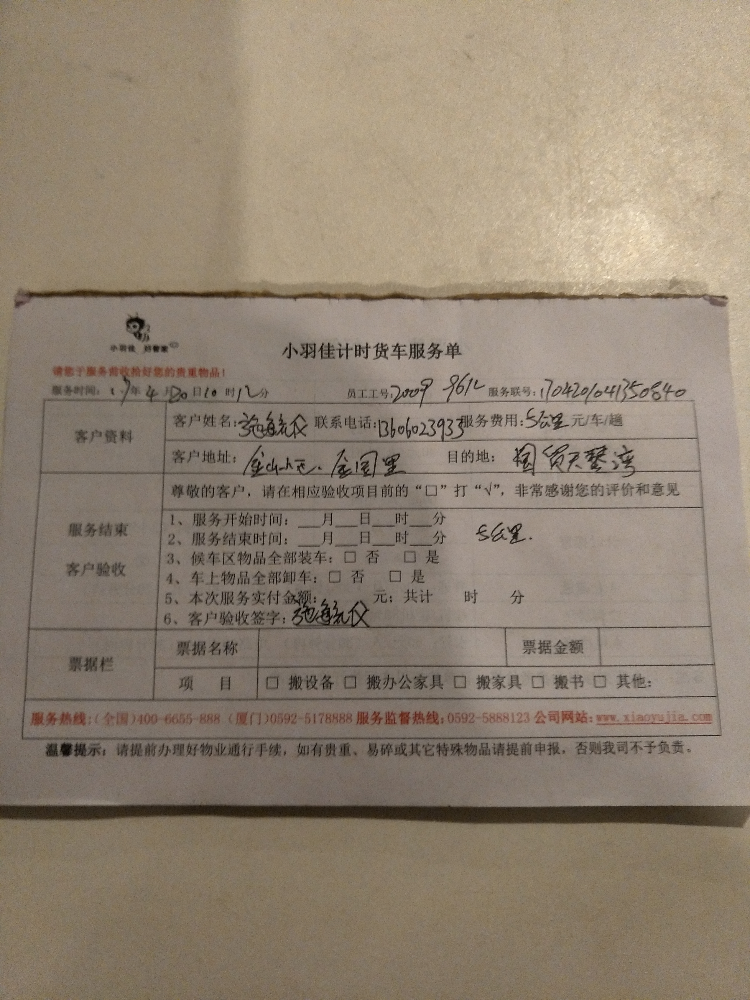 小羽佳 好管家
小羽佳计时货车服务单
请您于服务前收拾好您的贵重物品!
服务时间: 17年4月20日10时12分 员工工号: 2009 9612 服务联号: 1704201041350840
客户资料
客户姓名: 联系电话: 13606023933 服务费用: 5公里元/车/趟
客户地址: 金山小区、金国里 目的地: 国贸天琴湾
尊敬的客户,请在相应验收项目前的“□”打“√”,非常感谢您的评价和意见
服务结束
客户验收
1、服务开始时间:___月___日___时___分
2、服务结束时间:___月___日___时___分 5公里.
3、候车区物品全部装车:□ 否 □ 是
4、车上物品全部卸车:□ 否 □ 是
5、本次服务实付金额: 元;共计 时 分
6、客户验收签字:
票据栏
票据名称 票据金额
项 目 □ 搬设备 □ 搬办公家具 □ 搬家具 □ 搬书 □ 其他:
服务热线:(全国)400-6655-888 (厦门)0592-5178888 服务监督热线:0592-5888123 公司网站:www.xiaoyujia.com
温馨提示:请提前办理好物业通行手续,如有贵重、易碎或其它特殊物品请提前申报,否则我司不予负责。